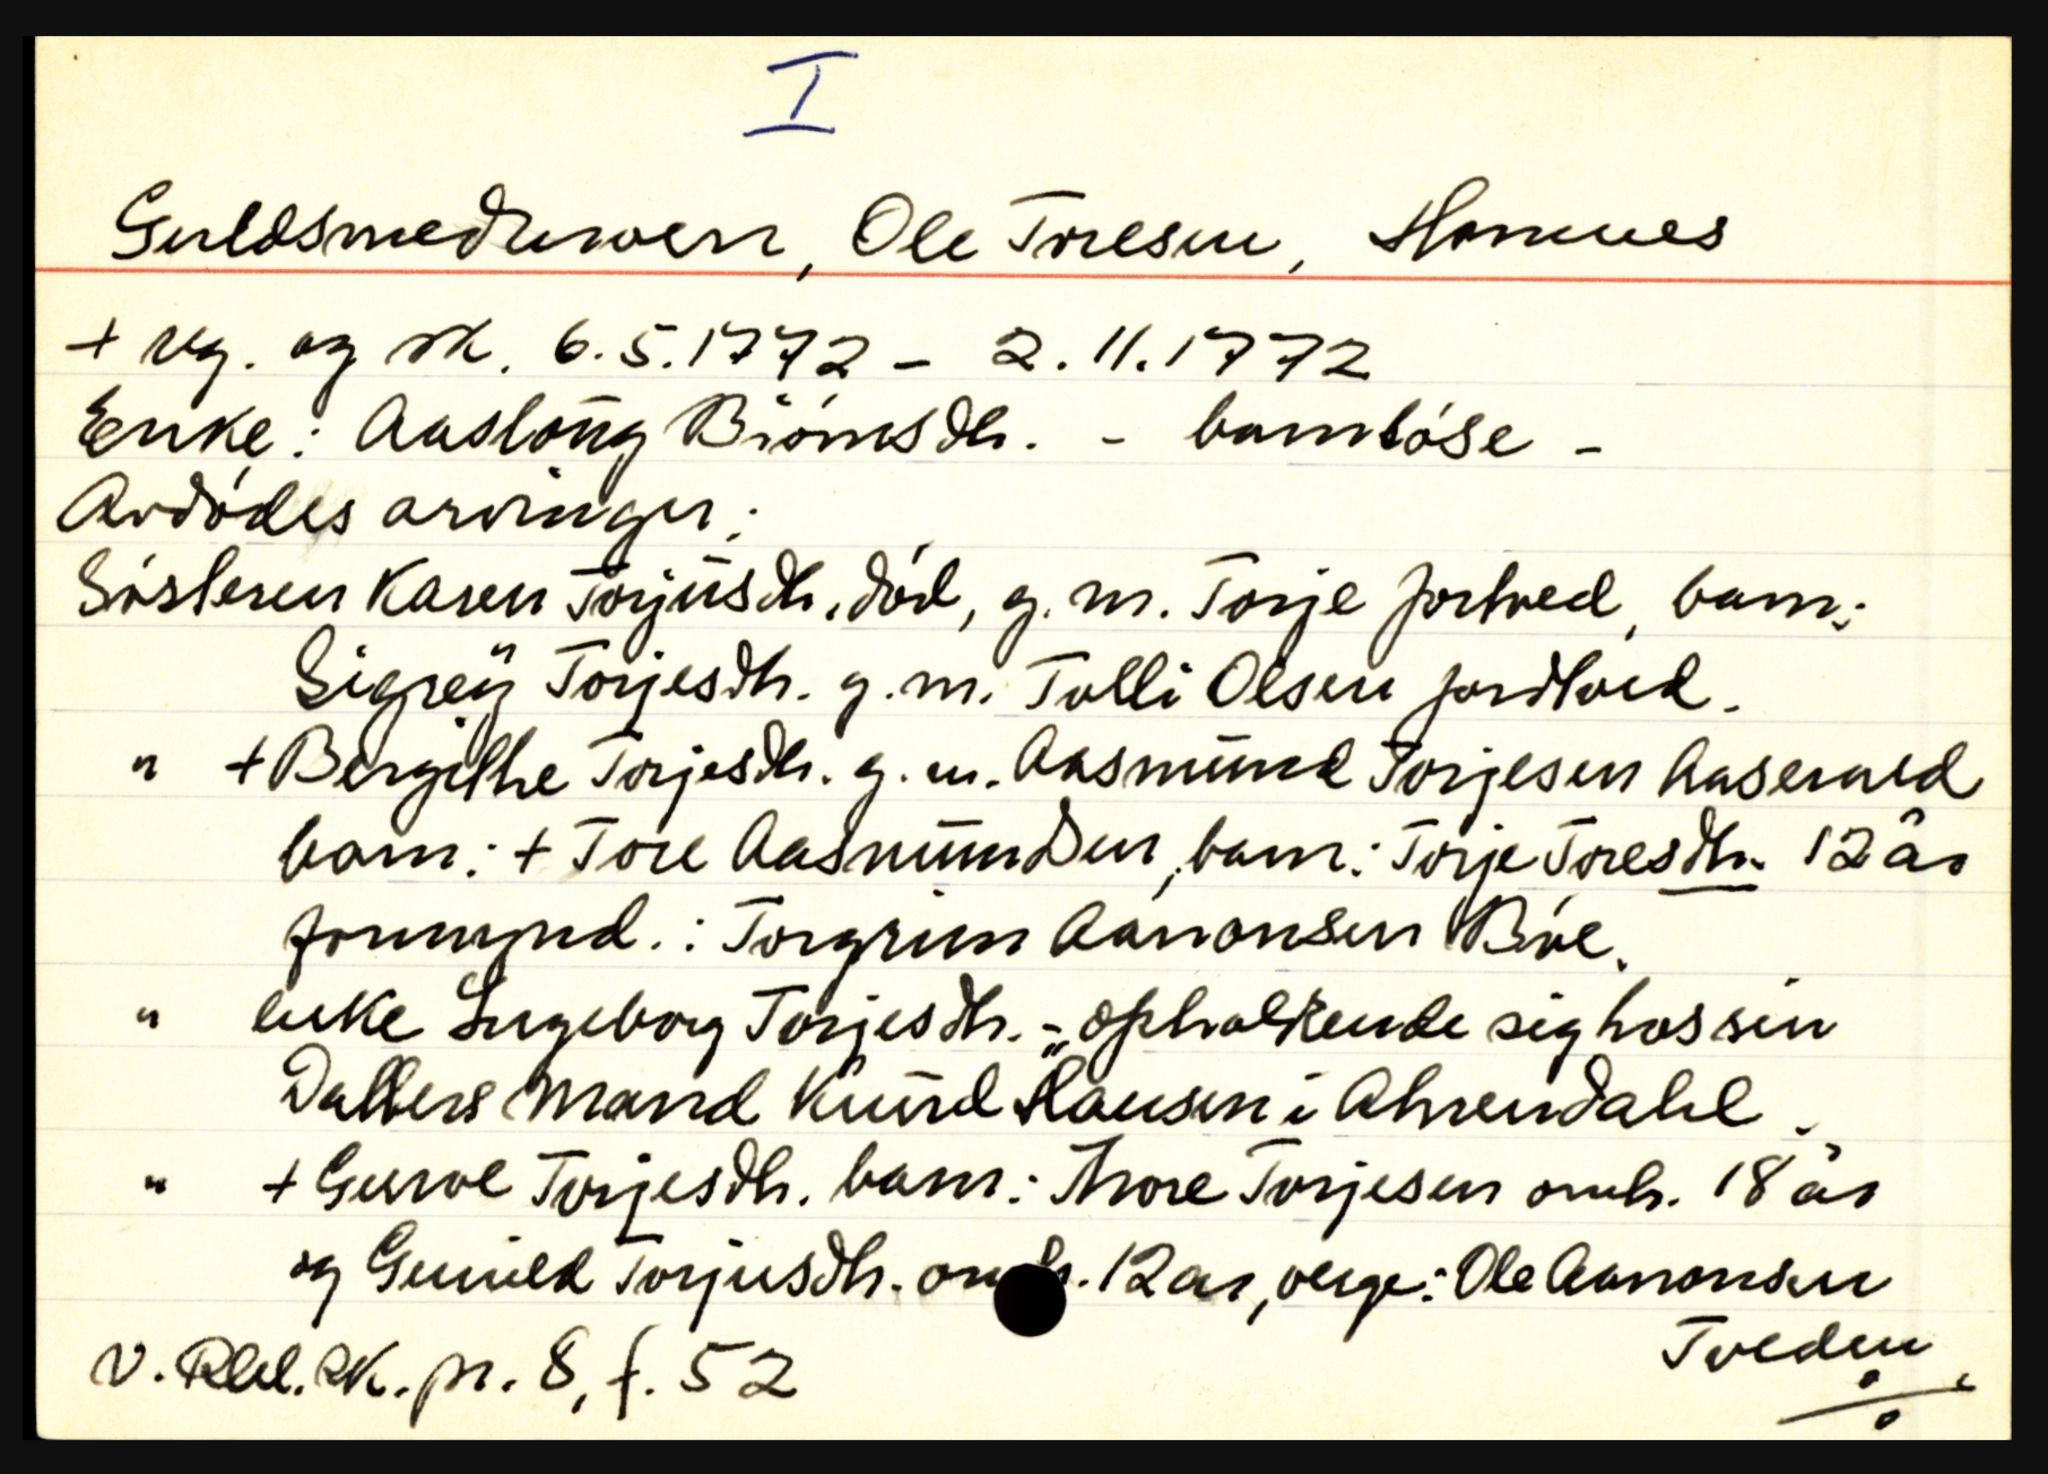 I
Guldsmedmoen, Ole Toresen, Homnes
+ reg. og sk. 6.5.1772 - 2.11.1772
Enke: Aaslaug Biörnsdtr. - barnlöse -
Avdödes arvinger:
Sösteren Karen Torjusdtr. död, g.m. Torje Jortved, barn:
Sigrey Torjesdtr. g.m. Tolli Olsen Jordtved.
" + Bergithe Torjesdtr. g.m. Aasmund Torjesen Aaserud
barn: + Tore Aasmundsen, barn: Torje Toresdtr. 12 år
formynd.: Torgrim Aanonsen Böe.
" enke Ingeborg Torjesdtr. - "opholdende sig hos sin
Datters Mand Knud Hansen i Ahrendahl.
" + Gurve Torjesdtr. barn: Thore Torjesen omtr. 18 år
og Gunild Torjusdtr. omtr. 12 år, verge: Ole Aanonsen
Tveden
V. Rbl. sk. pr. 8, f. 52